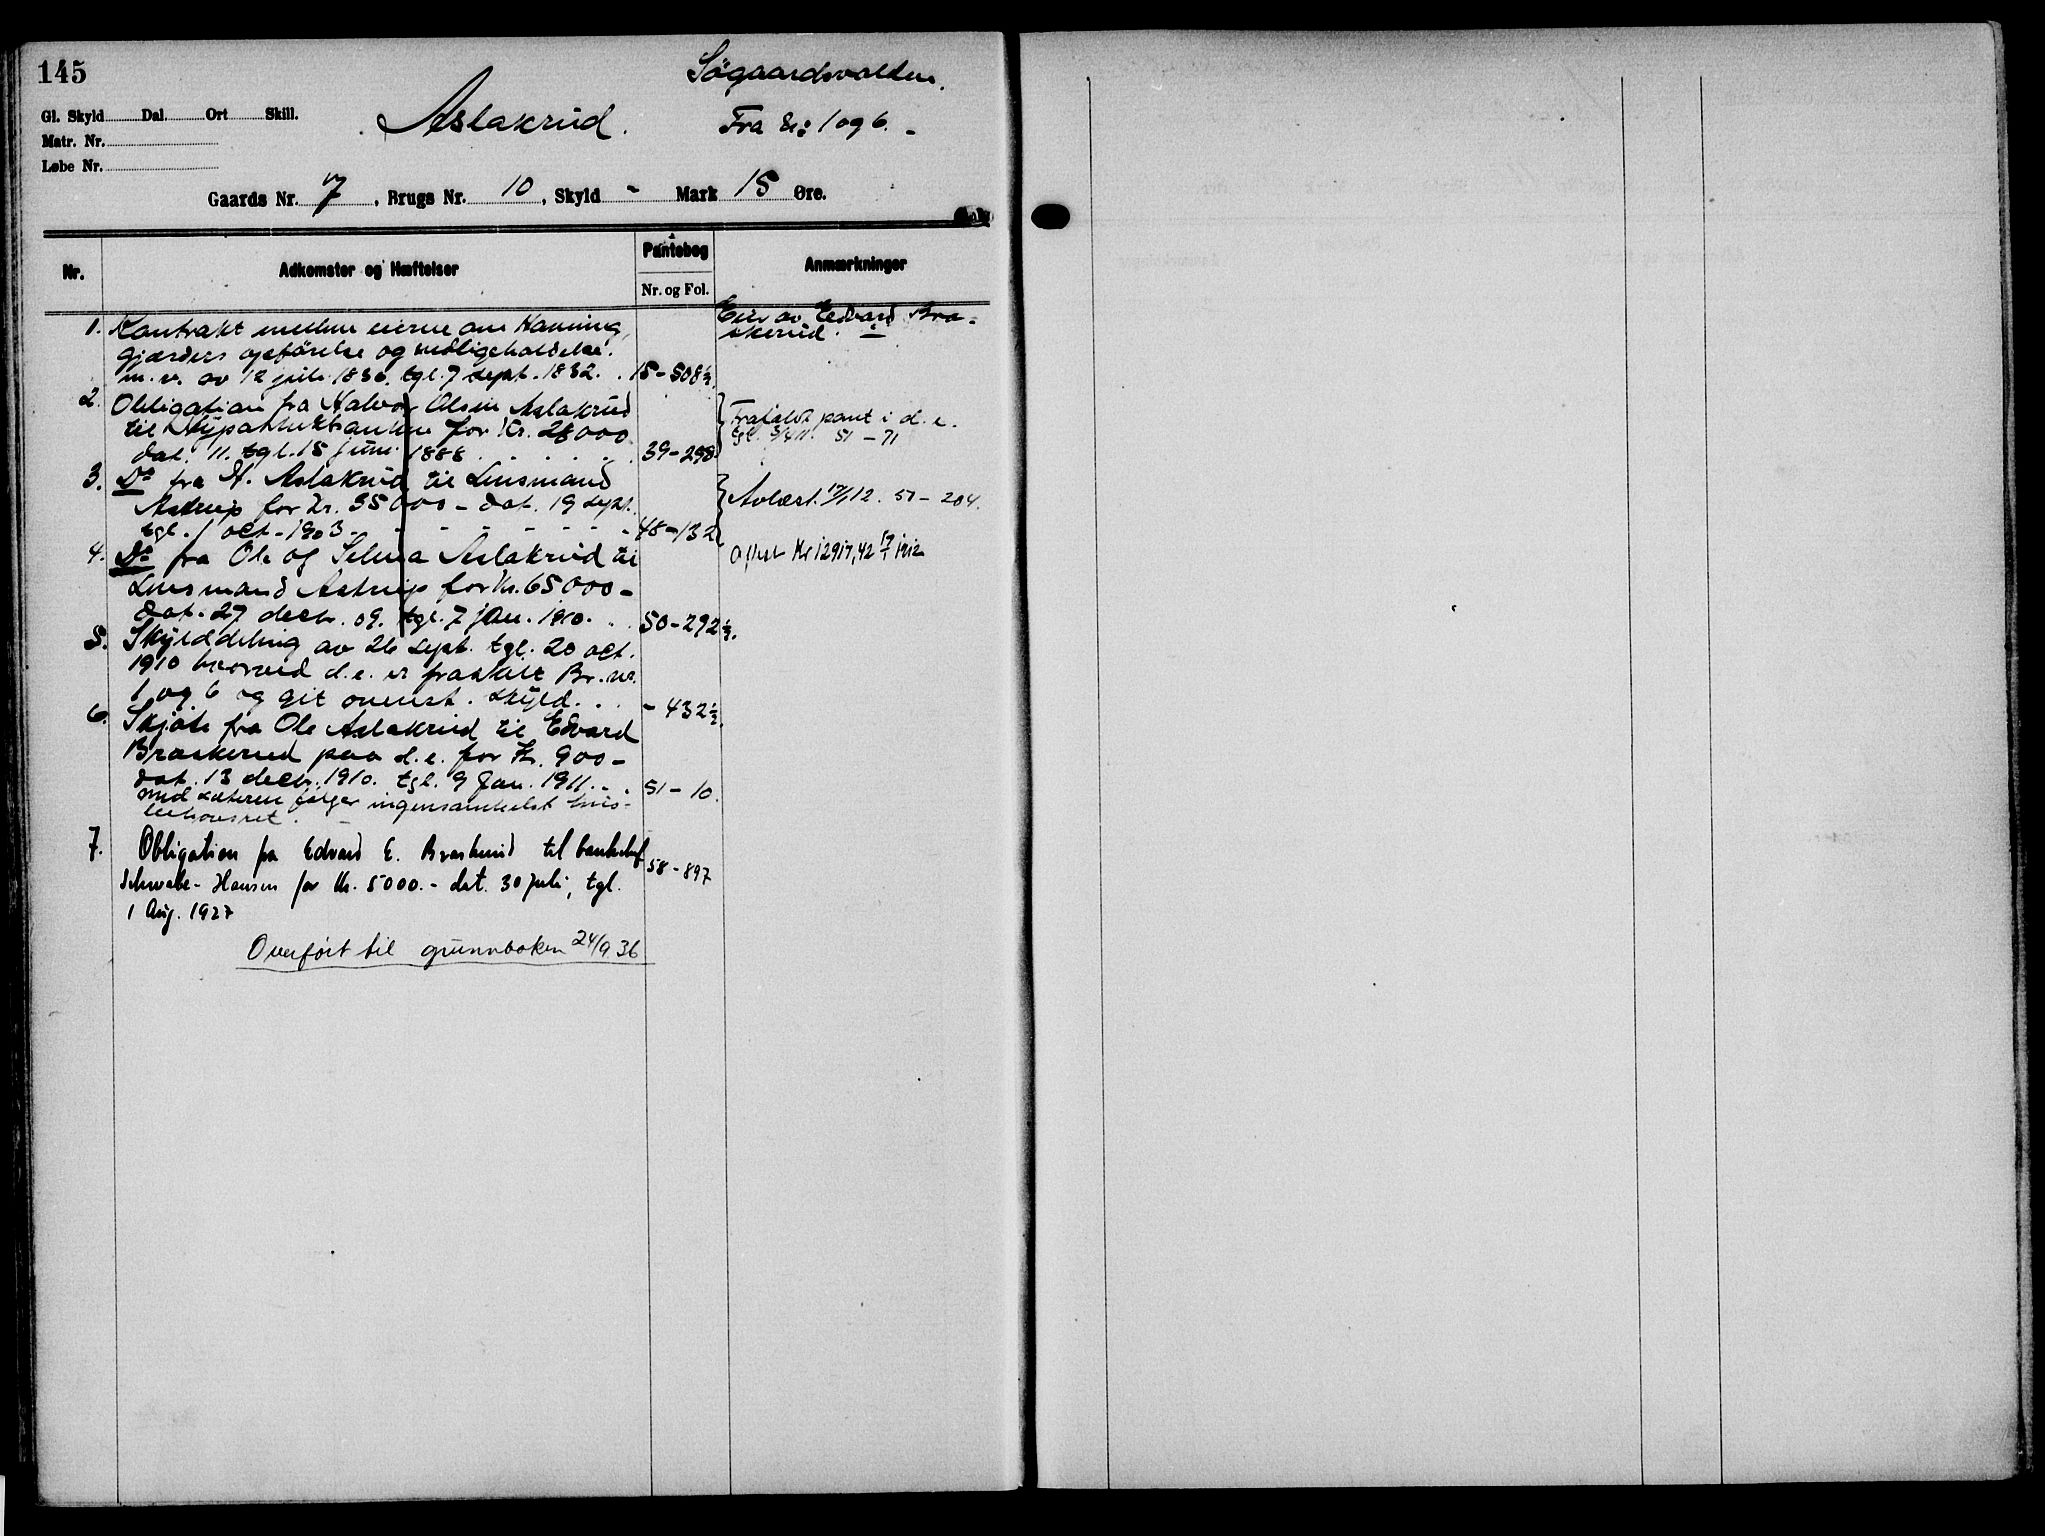 145
Søgaardsvolden.
Gl. Skyld Dal. Ort Skill.
Aslakrud.
Fra Br: 1 og 6. -
Matr. Nr.
Løbe Nr.
Gaards Nr. 7, Brugs Nr. 10, Skyld - Mark 15 Øre.
Nr. Adkomster og Hæftelser Pantebog Anmærkninger
Nr. og Fol.
1. Kontrakt mellem eierne om Havning,
gjærders opførelse og vedligeholdelse.
m.v. av 12 juli 1830. tgl. 7 sept. 1832. . 15-508½.
Eies av Edvard Bra-
skerud.
2. Obligation fra Halvor Olsen Aslakrud
til Hypothekbanken for Kr. 28000
dat. 11. tgl. 15 juni 1888 . . . . . 39-298
Frafaldt pant i d.e.
tgl. 3/4 11. 51-71
3. Do fra H. Aslakrud til Lensmand
Astrup for Kr. 35000 - dat. 19 sept.
tgl. 1 oct. 1903 - - - - - - - 48-132
Avlæst. 17/1 12. 51-204.
4. Do fra Ole og Selma Aslakrud til
Lensmand Astrup for Kr. 65000 -
dat. 27 decbr. 09. tgl. 7 jan. 1910. . . 50-292½.
Aflæst Kr 12917,42 17/1 1912
5. Skylddeling av 26 sept. tgl. 20 oct.
1910 hvorved d.e. er fraskilt Br. nr.
1 og 6 og git ovenst. skyld. . . - 432½.
6. Skjøte fra Ole Aslakrud til Edvard
Braskerud paa d.e. for Kr. 900 -
dat. 13 decbr. 1910. tgl. 9 Jan. 1911. . . 51-10.
Med sæteren følger ingensomhelst hus-
behovsret.
7. Obligation fra Edvard E. Braskerud til banksjef
Schwabe-Hansen for Kr. 5000.- dat. 30 juli, tgl.
1 Aug. 1927
58-897
Overført til grunnboken 24/9 36